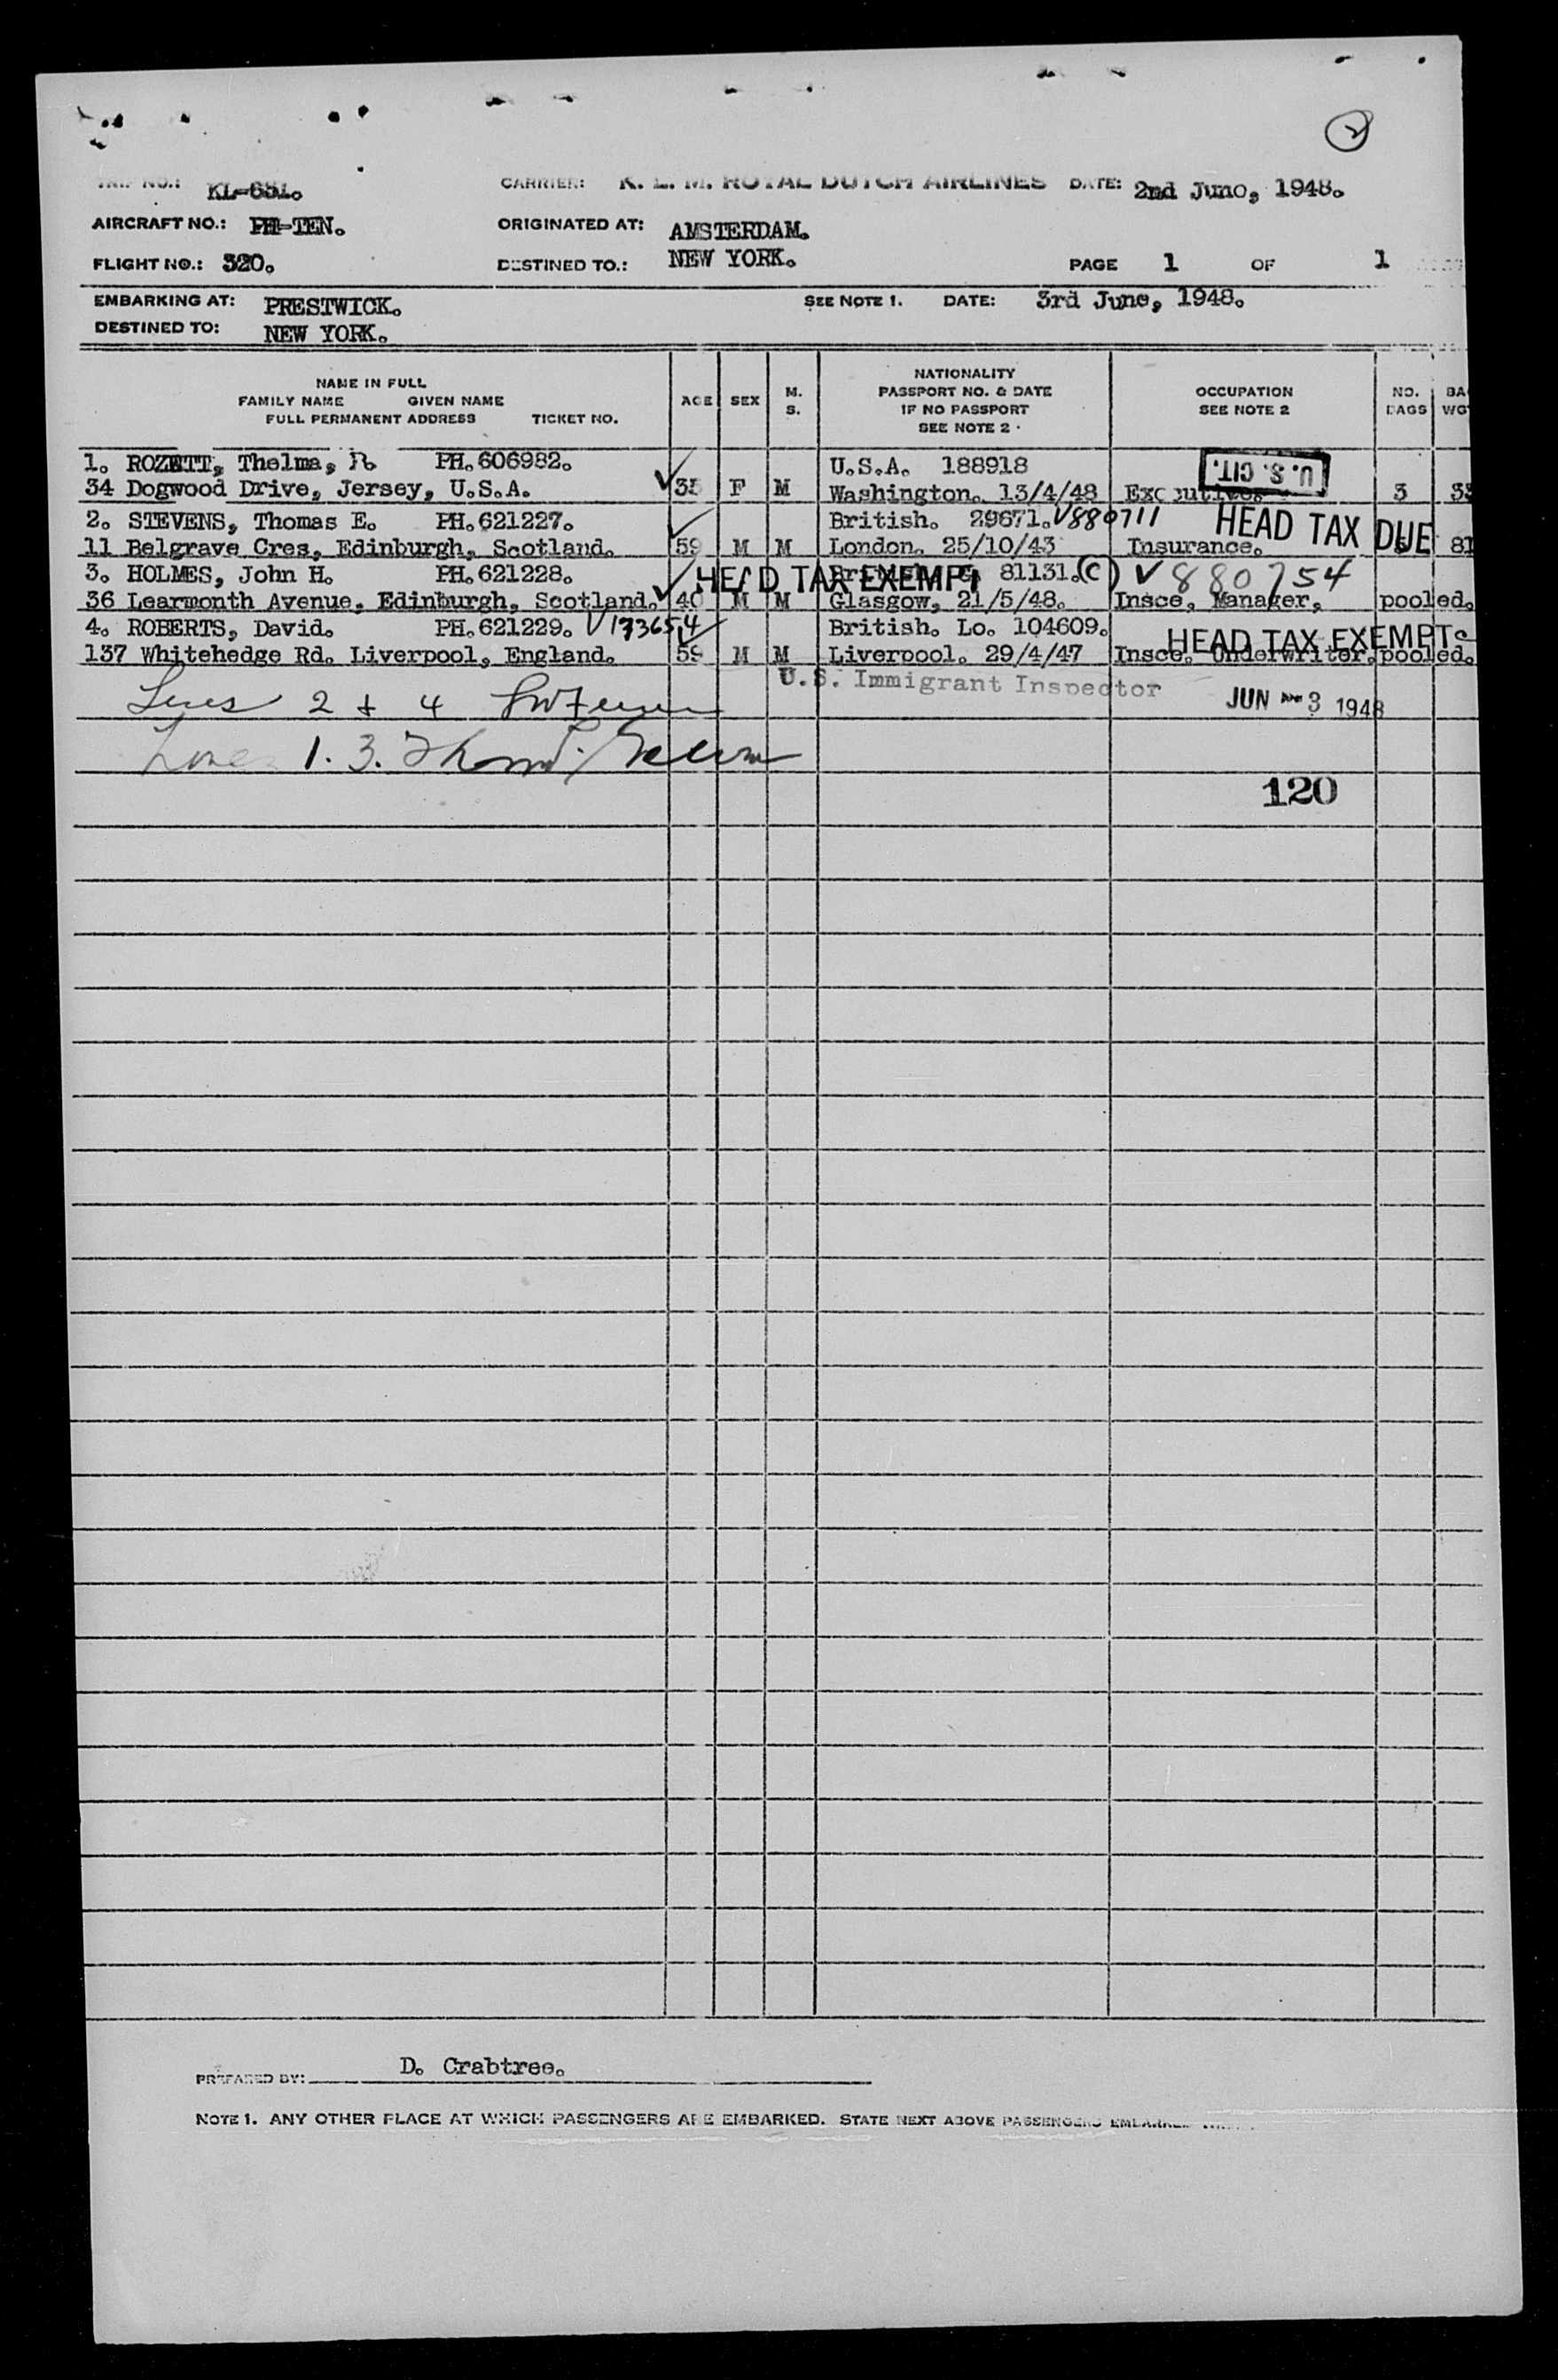 2
TRIP NO.: KL-651. CARRIER: K. L. M. ROYAL DUTCH AIRLINES DATE: 2nd June, 1948.
AIRCRAFT NO.: PH-TEN. ORIGINATED AT: AMSTERDAM.
FLIGHT NO.: 320. DESTINED TO.: NEW YORK. PAGE 1 OF 1
EMBARKING AT: PRESTWICK. SEE NOTE 1. DATE: 3rd June, 1948.
DESTINED TO: NEW YORK.
NAME IN FULL
FAMILY NAME GIVEN NAME
FULL PERMANENT ADDRESS TICKET NO.
AGE SEX M. S.
NATIONALITY
PASSPORT NO. & DATE
IF NO PASSPORT
SEE NOTE 2
OCCUPATION
SEE NOTE 2
NO. BAGS
BA
WGT
1. ROZETT, Thelma, R. PH.606982. U.S.A. 188918 U.S. CIT.
34 Dogwood Drive, Jersey, U.S.A. F M Washington. 13/4/48 Executives 3
2. STEVENS, Thomas E. PH.621227. British. 29671. V880711 HEAD TAX DUE
11 Belgrave Cres, Edinburgh, Scotland. 59 M M London. 25/10/43 Insurance. 81
3. HOLMES, John H. PH.621228. HEAD TAX EXEMPT 81131. (C) V 880754
36 Learmonth Avenue, Edinburgh, Scotland. 40 M M Glasgow, 21/5/48. Insce. Manager. pooled.
4. ROBERTS, David. PH.621229. V173654 British. Lo. 104609. HEAD TAX EXEMPT
137 Whitehedge Rd. Liverpool, England. 59 M M Liverpool. 29/4/47 Insce. Underwriter. pooled.
U.S. Immigrant Inspector
Lines 2 + 4
JUN 3 1948
Lines 1. 3.
120
PREPARED BY: D. Crabtree.
NOTE 1. ANY OTHER PLACE AT WHICH PASSENGERS ARE EMBARKED. STATE NEXT ABOVE PASSENGERS